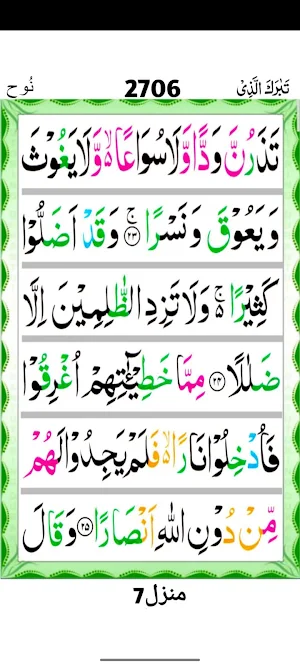 تَبٰرَكَ الَّذِیْ 2706 نُوح
تَذَرُنَّ وَدًّا وَّلَا سُوَاعًا ۙ۬ وَّ لَا یَغُوْثَ
وَ یَعُوْقَ وَ نَسْرًا ۚ‏﴿۲۳﴾ وَ قَدْ اَضَلُّوْا
كَثِیْرًا ۚ۬ وَ لَا تَزِدِ الظّٰلِمِیْنَ اِلَّا
ضَلٰلًا ﴿۲۴﴾ مِمَّا خَطِیْٓــٰٔتِهِمْ اُغْرِقُوْا
فَاُدْخِلُوْا نَارًا ۙ۬ فَلَمْ یَجِدُوْا لَهُمْ
مِّنْ دُوْنِ اللّٰهِ اَنْصَارًا ﴿۲۵﴾ وَ قَالَ
منزل7